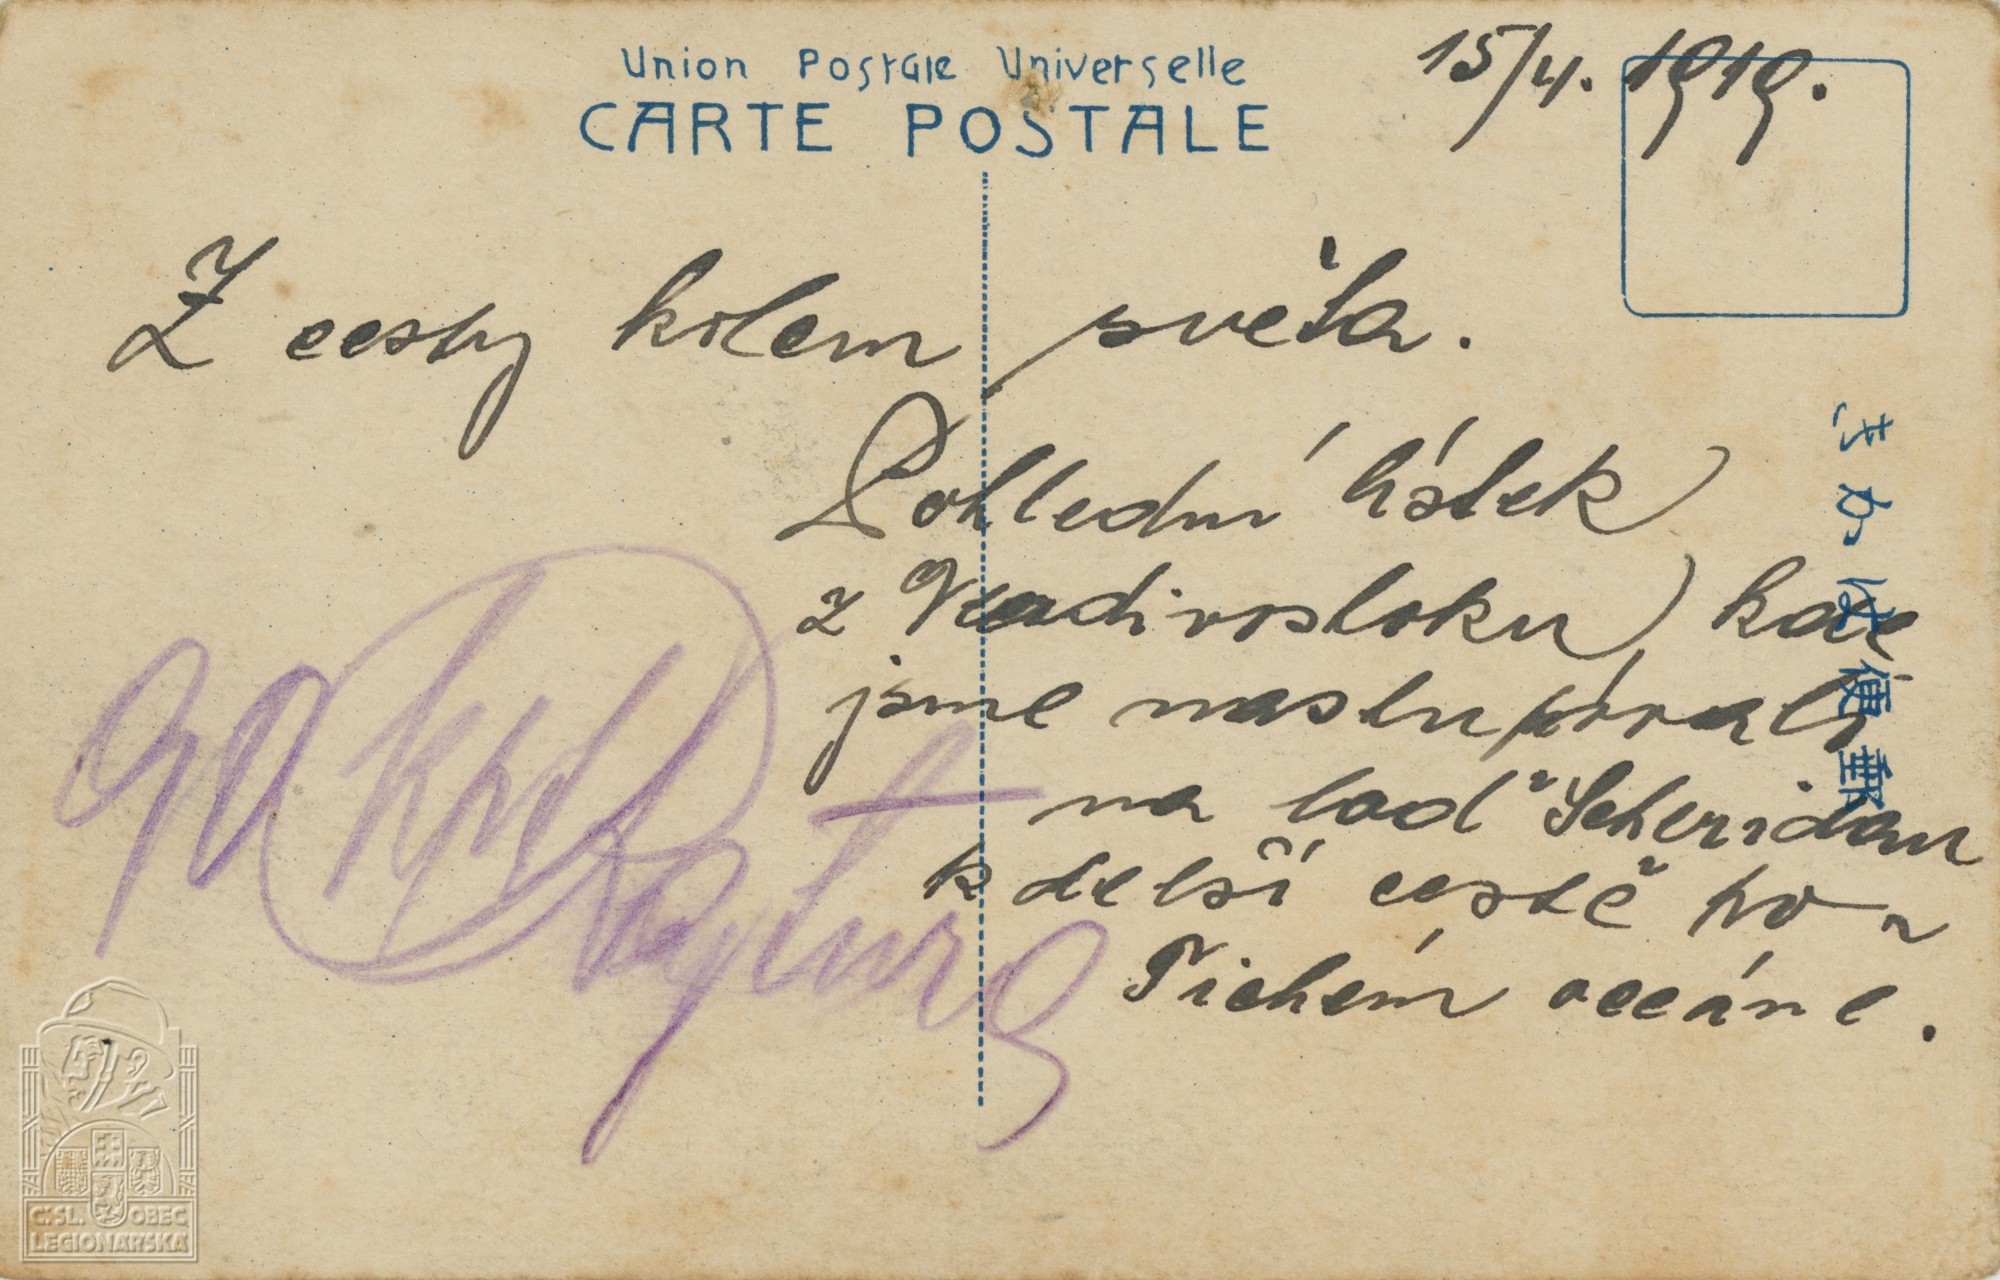 Union Postale Universelle
CARTE POSTALE
15/4. 1919.
Z cesty kolem světa.
Pohlední lístek
z Vladivostoku, kde
jsme nastupovali
na loď Scheridan
k delší cestě po
Tichém oceáně.
きかは便郵
90
Č.SL. OBEC
LEGIONÁŘSKÁ